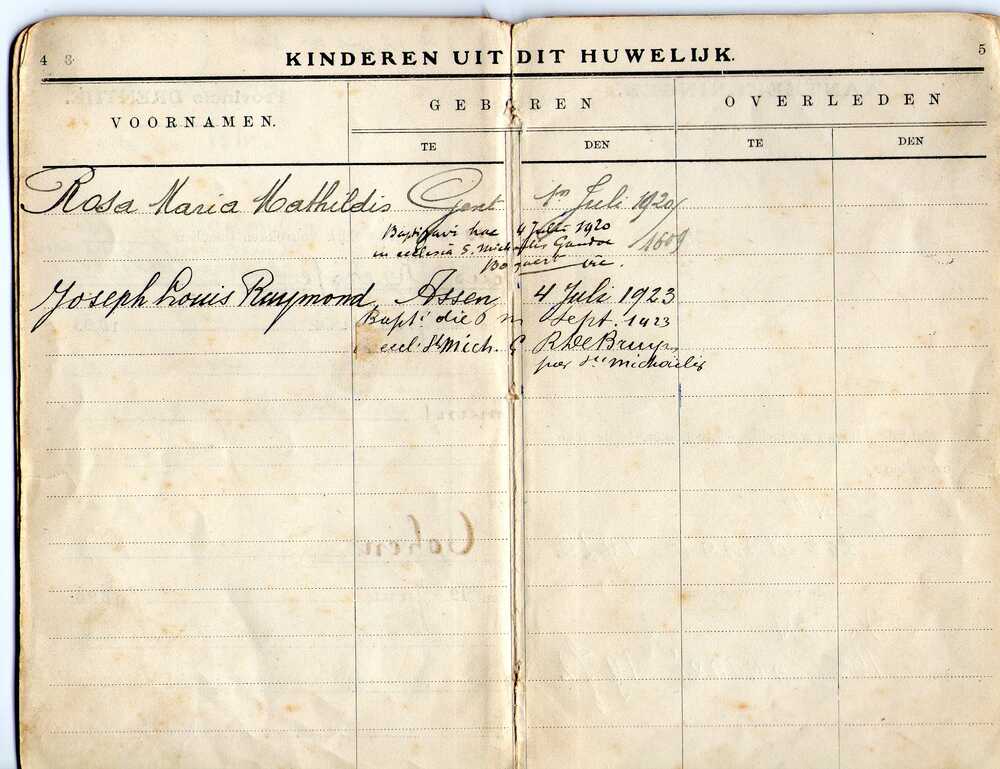 4 8 KINDEREN UIT DIT HUWELIJK. 5
VOORNAMEN. GEBOREN OVERLEDEN
TE DEN TE DEN
Rosa Maria Mathildis Gent 1n Juli 1920
Baptizavi hac 4 Julii 1920 1609
in ecclesia S. Michaelis Gandae
Bogaert vic.
Joseph Louis Raymond, Assen 4 Juli 1923
Bapt. die 6 Sept. 1923
eccl. St Mich. G R De Bruyn
St Michaelis
Cohen